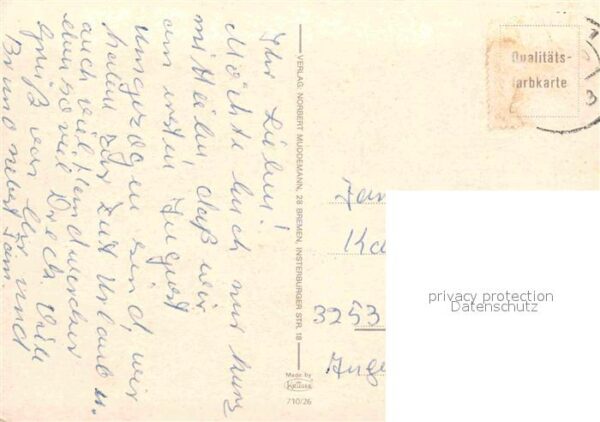 Ihr Lieben!
Möchte Euch nur kurz
mitteilen daß wir
am ersten August
umgezogen sind, wir
haben zur Zeit Urlaub u.
auch viel Handwerker
ebenso viel Dreck. Viele
Grüße von Ur. und
Bruno nebst Fam.
VERLAG: NORBERT MUDDEMANN, 28 BREMEN, INSTERBURGER STR. 18
Made by
Krüger
710/26
Qualitäts-
farbkarte
3
Fam
Ka
3253
privacy protection
Datenschutz